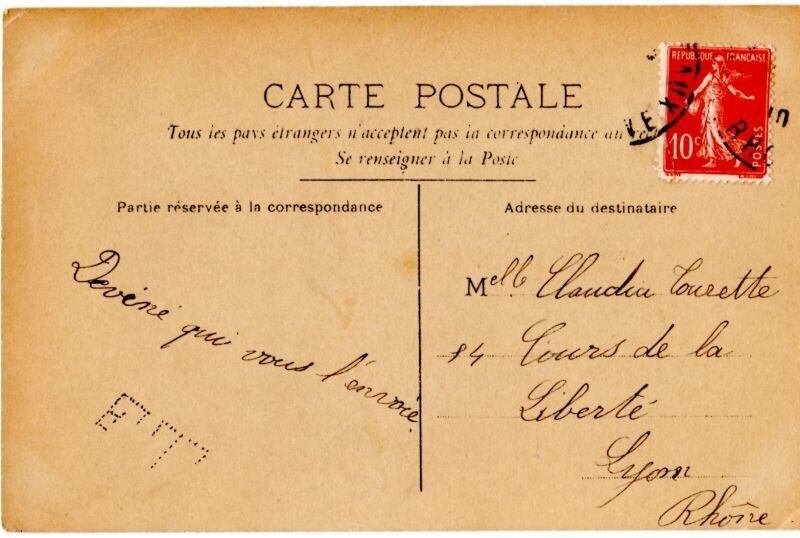 CARTE POSTALE
Tous les pays étrangers n'acceptent pas la correspondance au
Se renseigner à la Poste
REPUBLIQUE FRANÇAISE
10c
POSTES
VEXUX
RH
10
Partie réservée à la correspondance
Deviné qui vous l'envoie.
Adresse du destinataire
Melle Claudia Tourette
84 Cours de la
Liberté
Lyon
Rhône